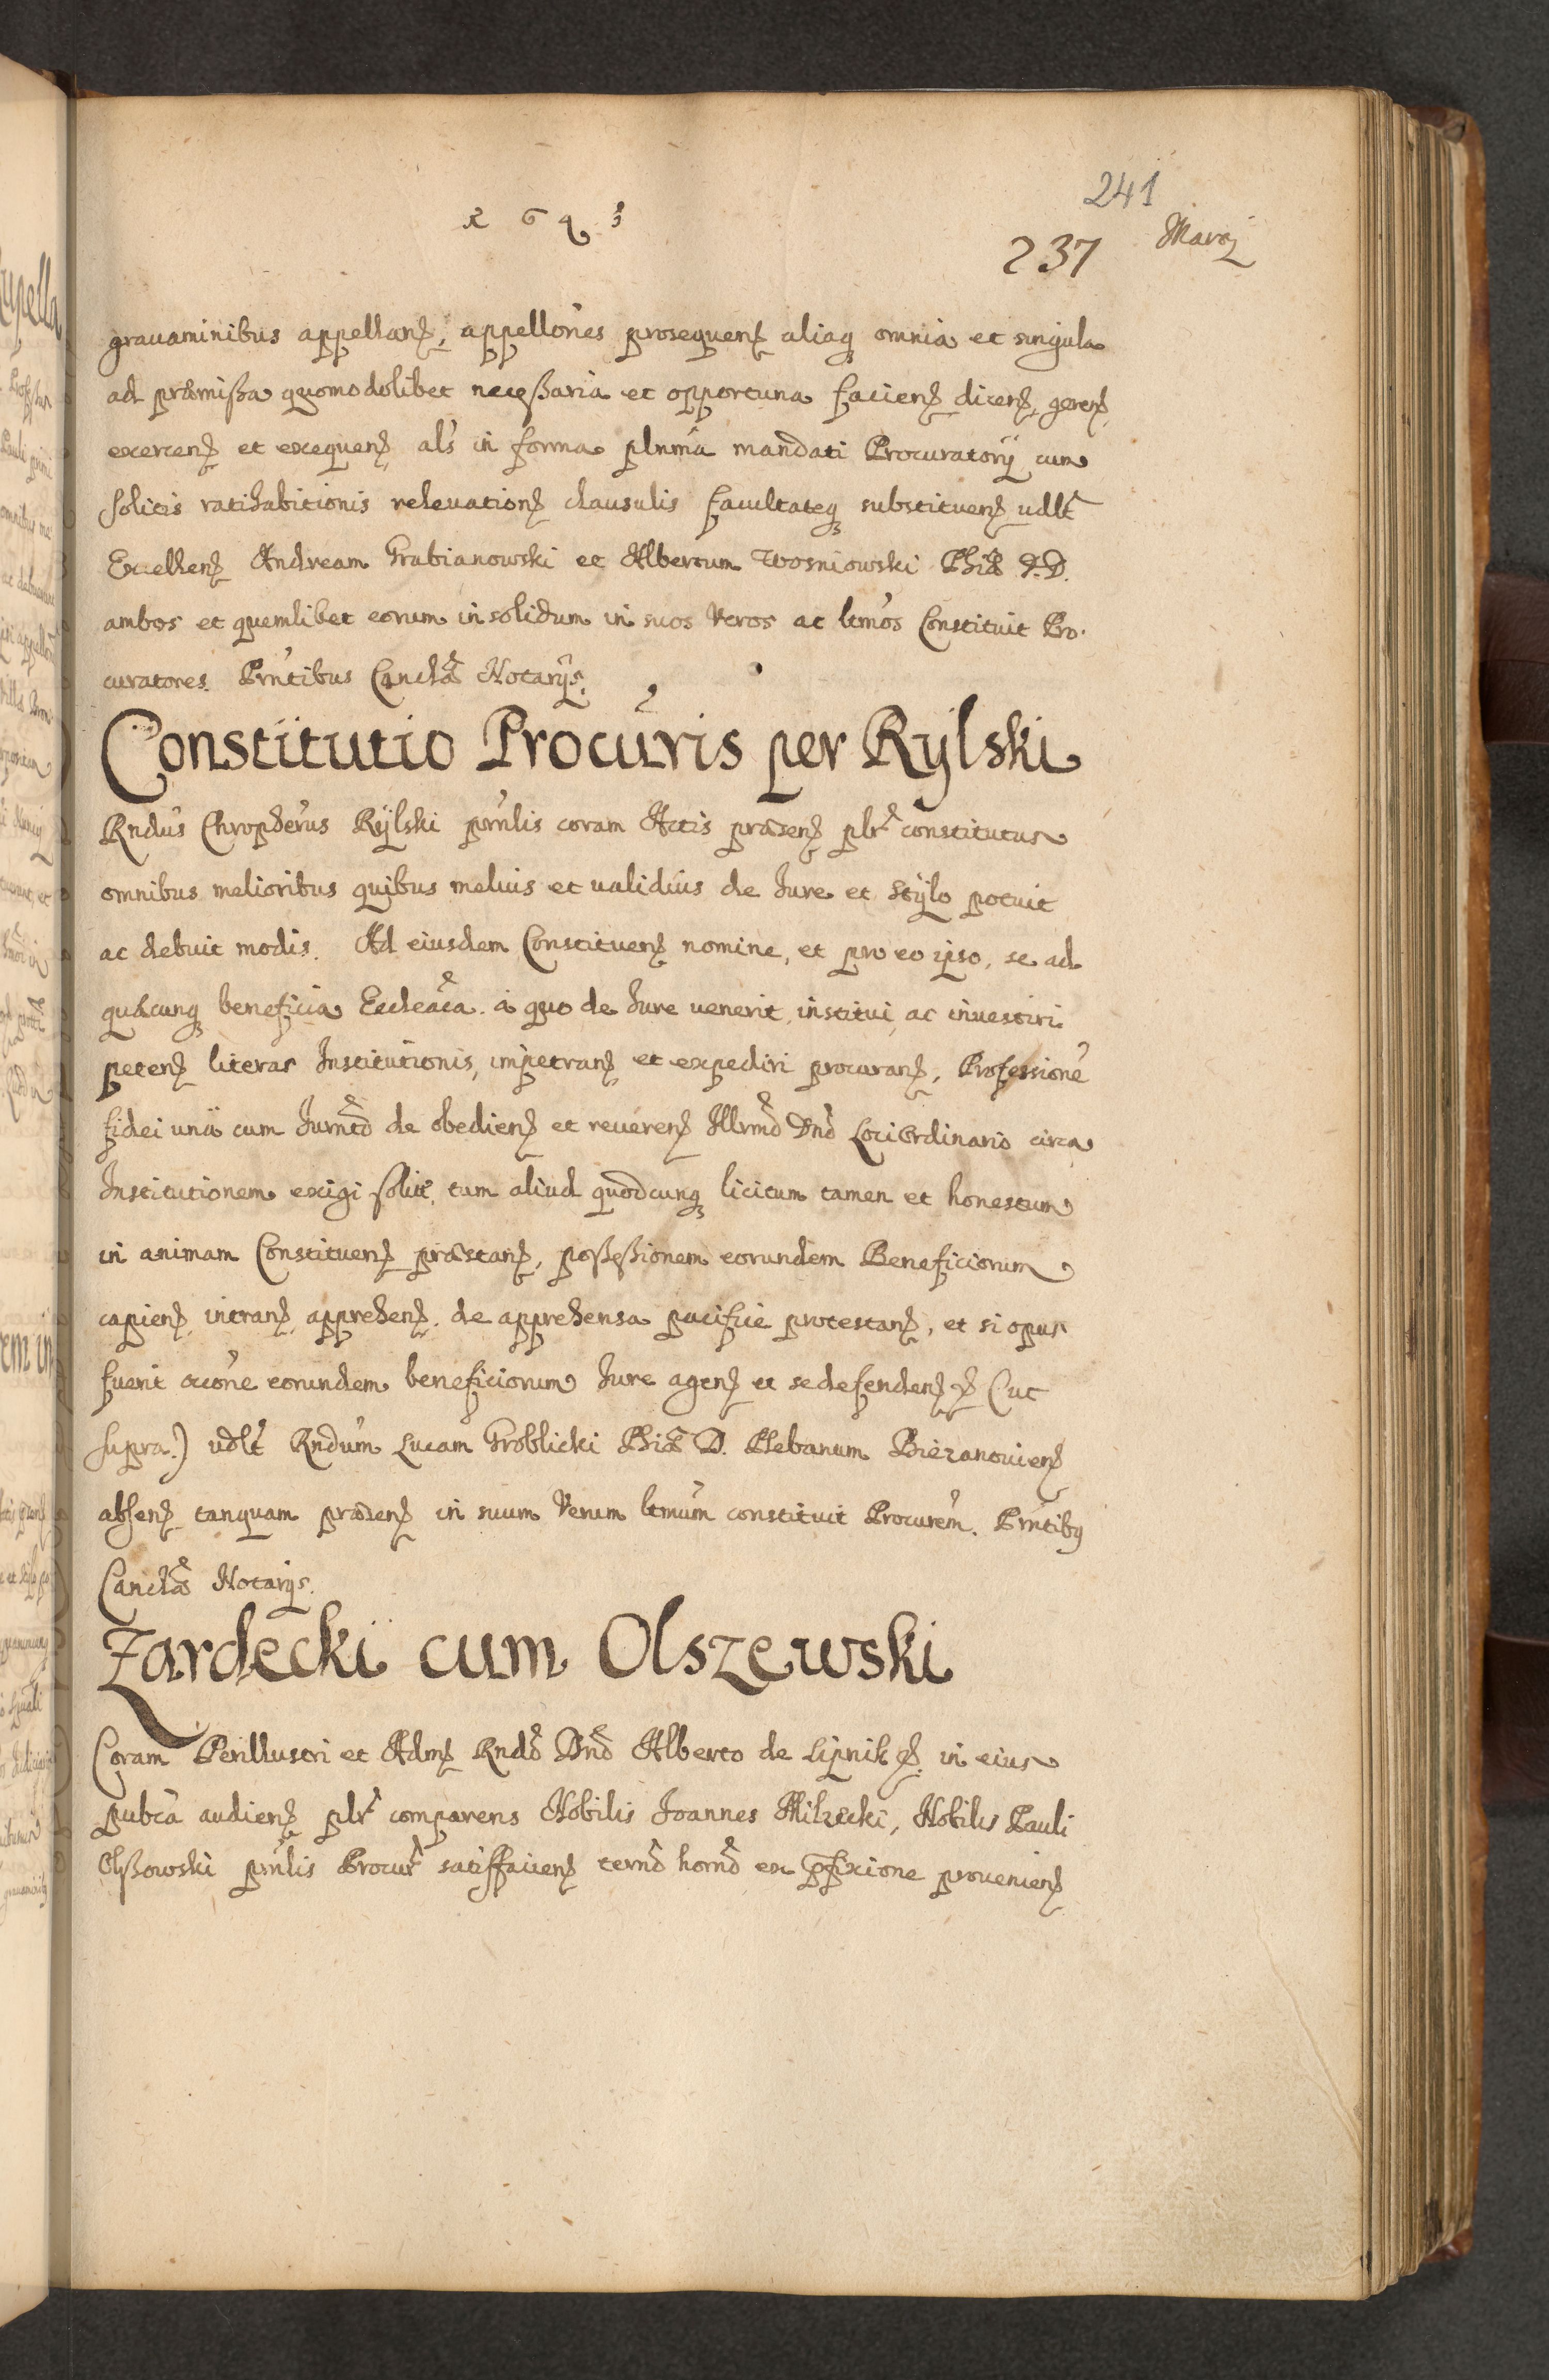 241
1643
237 Marÿ
grauaminibus appellanȝ, appellões prosequenȝ aliaqȝ omnia et singula
ad præmißa quomodolibet neceßaria et opportuna facienȝ dicenȝ, gerenȝ
exercenȝ et exequenȝ als in forma plnma mandati Procuratorÿ cum
solitis ratihabitionis releuationȝ clausulis facultateqȝ substituenȝ udlt
Excellenȝ Andream Grabianowski et Albertum Wosniowski Phiæ D.D.
ambos et quemlibet eorum in solidum in suos Veros ac ltmos Constituit Pro-
curatores. Prntibus Canclæ Notarÿs.
Constitutio Procuris per Rÿlski
Rndus Chrophorus Rÿlski prnlis coram Actis præsenȝ plr constitutus
omnibus melioribus quibus melius et ualidius de Iure et Stÿlo potuit
ac debuit modis. Ad eiusdem Constituenȝ nomine, et pro eo ipso, se ad
quæcunqȝ beneficia Eccleaca. a quo de Iure uenerit institui ac inuestiri
petenȝ literas Institutionis, impetranȝ et expediri procuranȝ, Professionẽ
fidei unà cum Iurnto de obedienȝ et reuerenȝ Illrmo Dno Loci Ordinario circa
Institutionem exigi solit. tum aliud quodcunqȝ licitum tamen et honestum
in animam Constituenȝ præstanȝ, poßeßionem eorundem Beneficiorum
capienȝ, intranȝ, apprehenȝ. de apprehensa pacifice protestanȝ, et si opus
fuerit oõne eorundem beneficiorum Iure agenȝ et se defendenȝ (ut
supra.) udlt Rndum Lucam Groblicki Phiæ D. Plebanum Biezanouienȝ
absenȝ tanquam præsenȝ in suum Verum ltmum constituit Procurem. Prntibqȝ
Canclæ Notarÿs.
Zardecki cum Olszewski
Coram Perillustri et Admȝ Rndo Dno Alberto de Lipnik in eius
pubca audienȝ plr comparens Nobilis Ioannes Nobilis Pauli
Olßowski prnlis Procur satisfacienȝ termo horno ex pfixione prouenienȝ